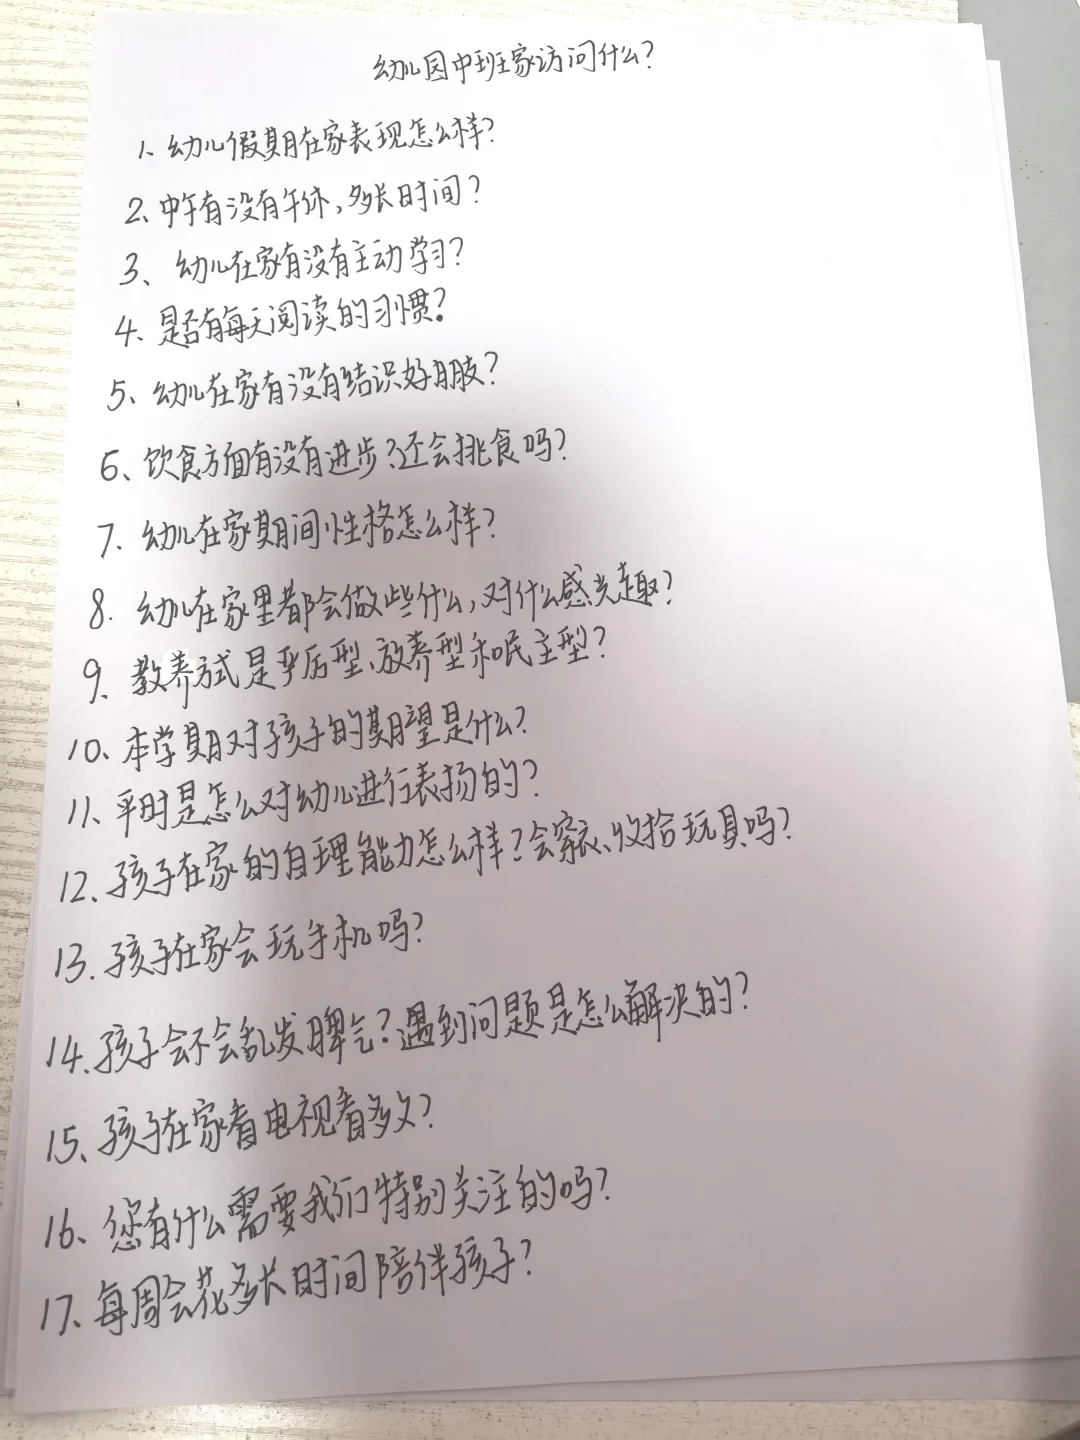 幼儿园中班家访问什么?
1、幼儿假期在家表现怎么样?
2、中午有没有午休,多长时间?
3、幼儿在家有没有主动学习?
4、是否有每天阅读的习惯?
5、幼儿在家有没有结识好朋友?
6、饮食方面有没有进步?还会挑食吗?
7、幼儿在家期间性格怎么样?
8、幼儿在家里都会做些什么,对什么感兴趣?
9、教养方式是严厉型、放养型和民主型?
10、本学期对孩子的期望是什么?
11、平时是怎么对幼儿进行表扬的?
12、孩子在家的自理能力怎么样?会穿衣、收拾玩具吗?
13、孩子在家会玩手机吗?
14、孩子会不会乱发脾气?遇到问题是怎么解决的?
15、孩子在家看电视看多久?
16、您有什么需要我们特别关注的吗?
17、每周会花多长时间陪伴孩子?